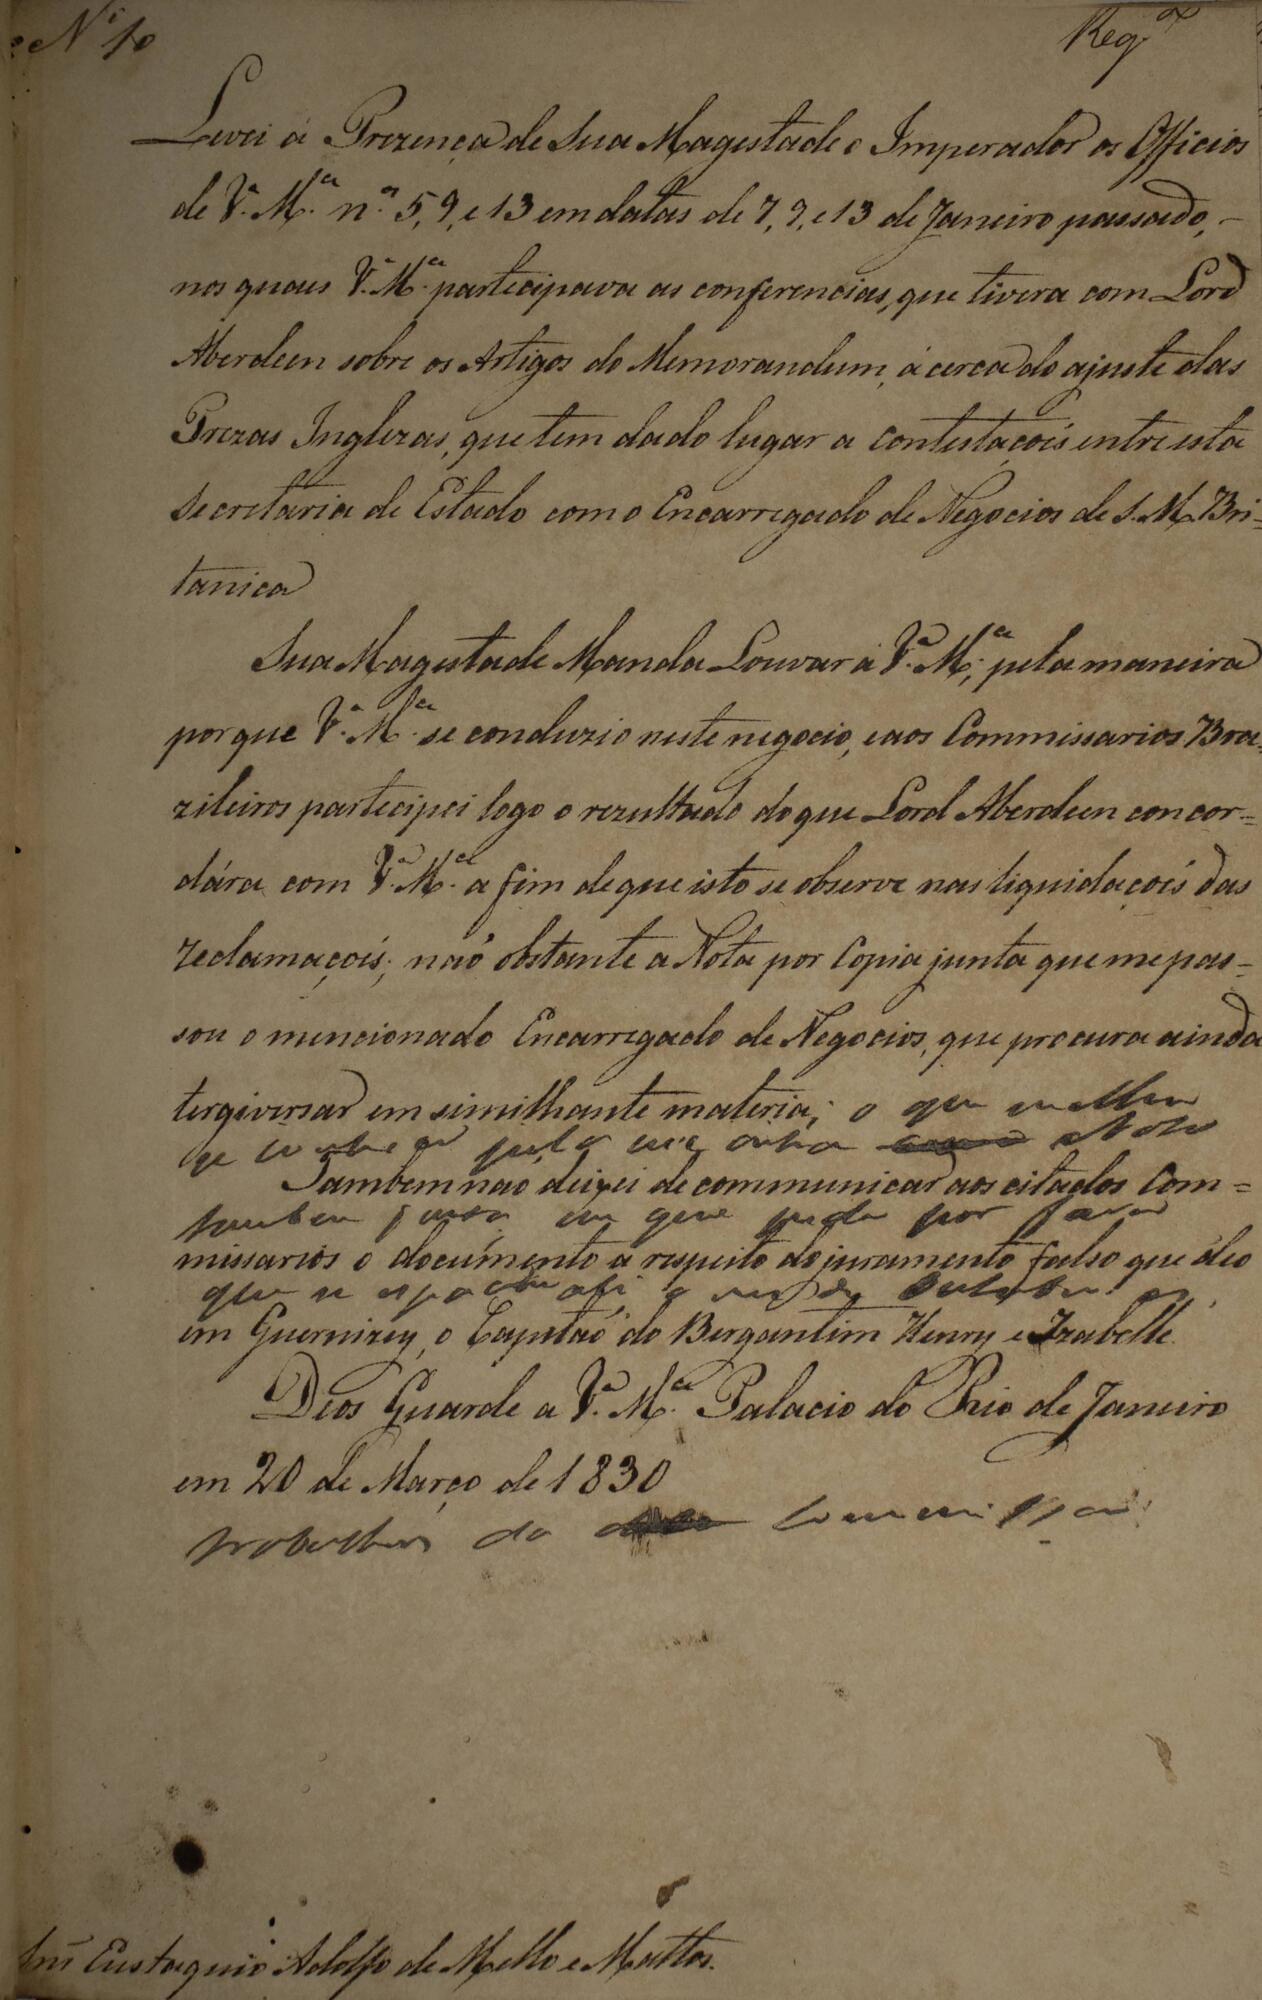 Nº 10
Regdo
Levei á Prezença de Sua Magestade o Imperador os Officios
de V.ª M.ce n.os 5, 9, e 13 em datas de 7, 9, e 13 de Janeiro passado,
nos quaes V.ª M.ce participava as conferencias, que tivera com Lord
Aberdeen sobre os Artigos do Memorandum, á cerca do ajuste das
Prezas Inglezas, que tem dado lugar a contestaçoẽs entre esta
Secretaria de Estado com o Encarregado de Negocios de S. M. Bri=
tanica
Sua Magestade Manda Louvar á V.ª M.ce, pela maneira
porque V.ª M.ce se conduzio neste negocio, e aos Commissarios Bra=
zileiros participei logo o rezultado do que Lord Aberdeen concor=
dára com V.ª M.ce a fim de que isto se observe nas liquidaçoẽs das
reclamaçoẽs; naõ obstante a Nota por Copia junta que me pas=
sou o mencionado Encarregado de Negocios, que procura ainda
tergiversar em similhante materia; o que melhor
se pela outra Nota
Tambem naõ deixei de communicar aos citados Com=
tambem junta em que pede por
missarios o documento a respeito do juramento falso que deo
que se
em Guernizey, o Capitaõ do Bergantim Henry e Izabelle.
Deos Guarde a V.ª M.ce Palacio do Rio de Janeiro
em 20 de Março de 1830
trabalhos da Commissaõ
Snr Eustaquio Adolfo de Mello e Mattos.